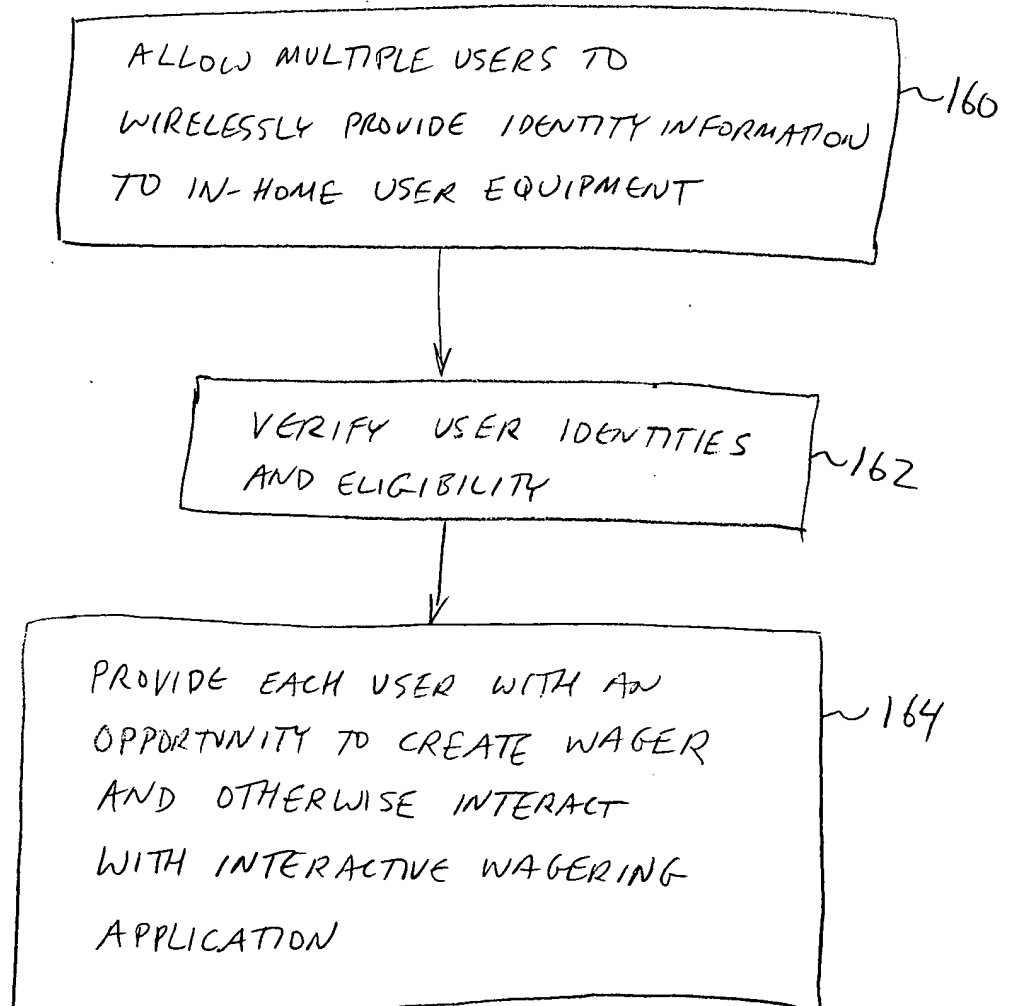 ALLOW MULTIPLE USERS TO
WIRELESSLY PROVIDE IDENTITY INFORMATION
TO IN-HOME USER EQUIPMENT
160
VERIFY USER IDENTITIES
AND ELIGIBILITY
162
PROVIDE EACH USER WITH AN
OPPORTUNITY TO CREATE WAGER
AND OTHERWISE INTERACT
WITH INTERACTIVE WAGERING
APPLICATION
164